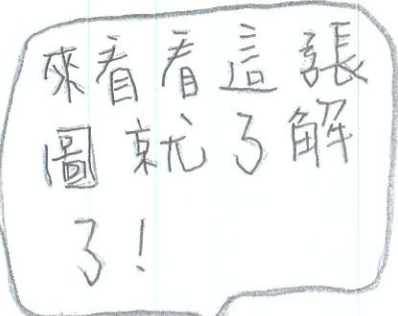 來看看這張
圖就了解
了!